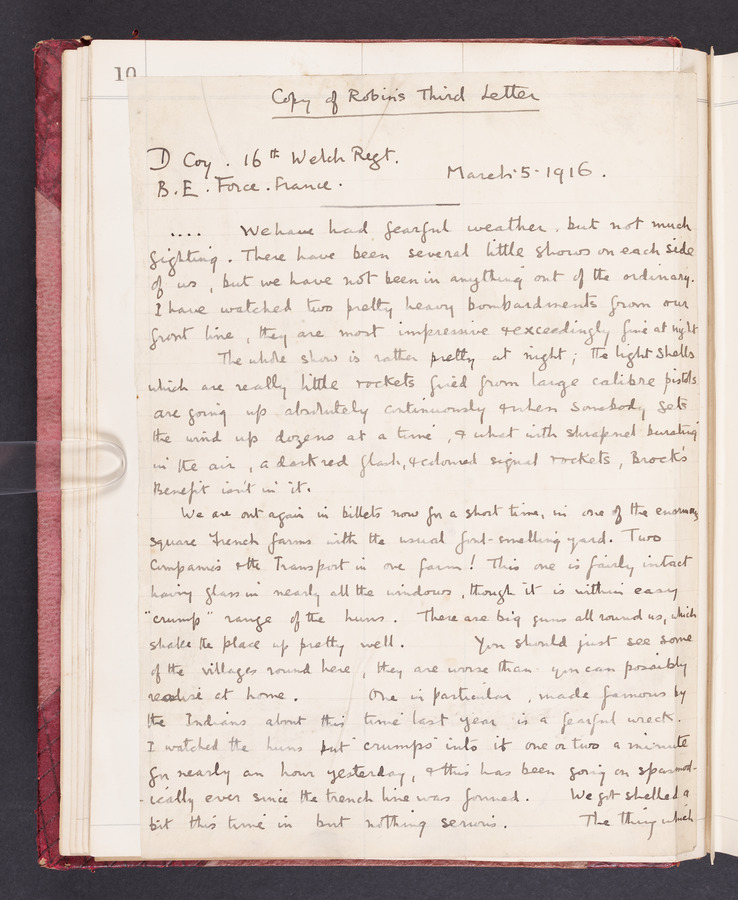 10
Copy of Robin's Third Letter
D Coy. 16th Welch Regt.
March 5 - 1916.
B.E. Force. France.
.... We have had fearful weather, but not much
fighting. There have been several little shows on each side
of us, but we have not been in anything out of the ordinary.
I have watched two pretty heavy bombardments from our
front line, they are most impressive & exceedingly fine at night
The whole show is rather pretty at night; the light shells
which are really little rockets fired from large calibre pistols
are going up absolutely continuously & when somebody gets
the wind up dozens at a time, & what with shrapnel bursting
in the air, a dark red flash, & coloured signal rockets, Brock's
Benefit isn't in it.
We are out again in billets now for a short time, in one of the enormous
square French farms with the usual foul-smelling yard. Two
Companies & the Transport in one farm! This one is fairly intact
having glass in nearly all the windows, though it is within easy
"crump" range of the huns. There are big guns all round us, which
shake the place up pretty well. You should just see some
of the villages round here, they are worse than you can possibly
realise at home. One in particular, made famous by
the Indians about this time last year is a fearful wreck.
I watched the huns put "crumps" into it one or two a minute
for nearly an hour yesterday, & this has been going on spasmod-
-ically ever since the trench line was formed. We got shelled a
bit this time in but nothing serious. The thing which